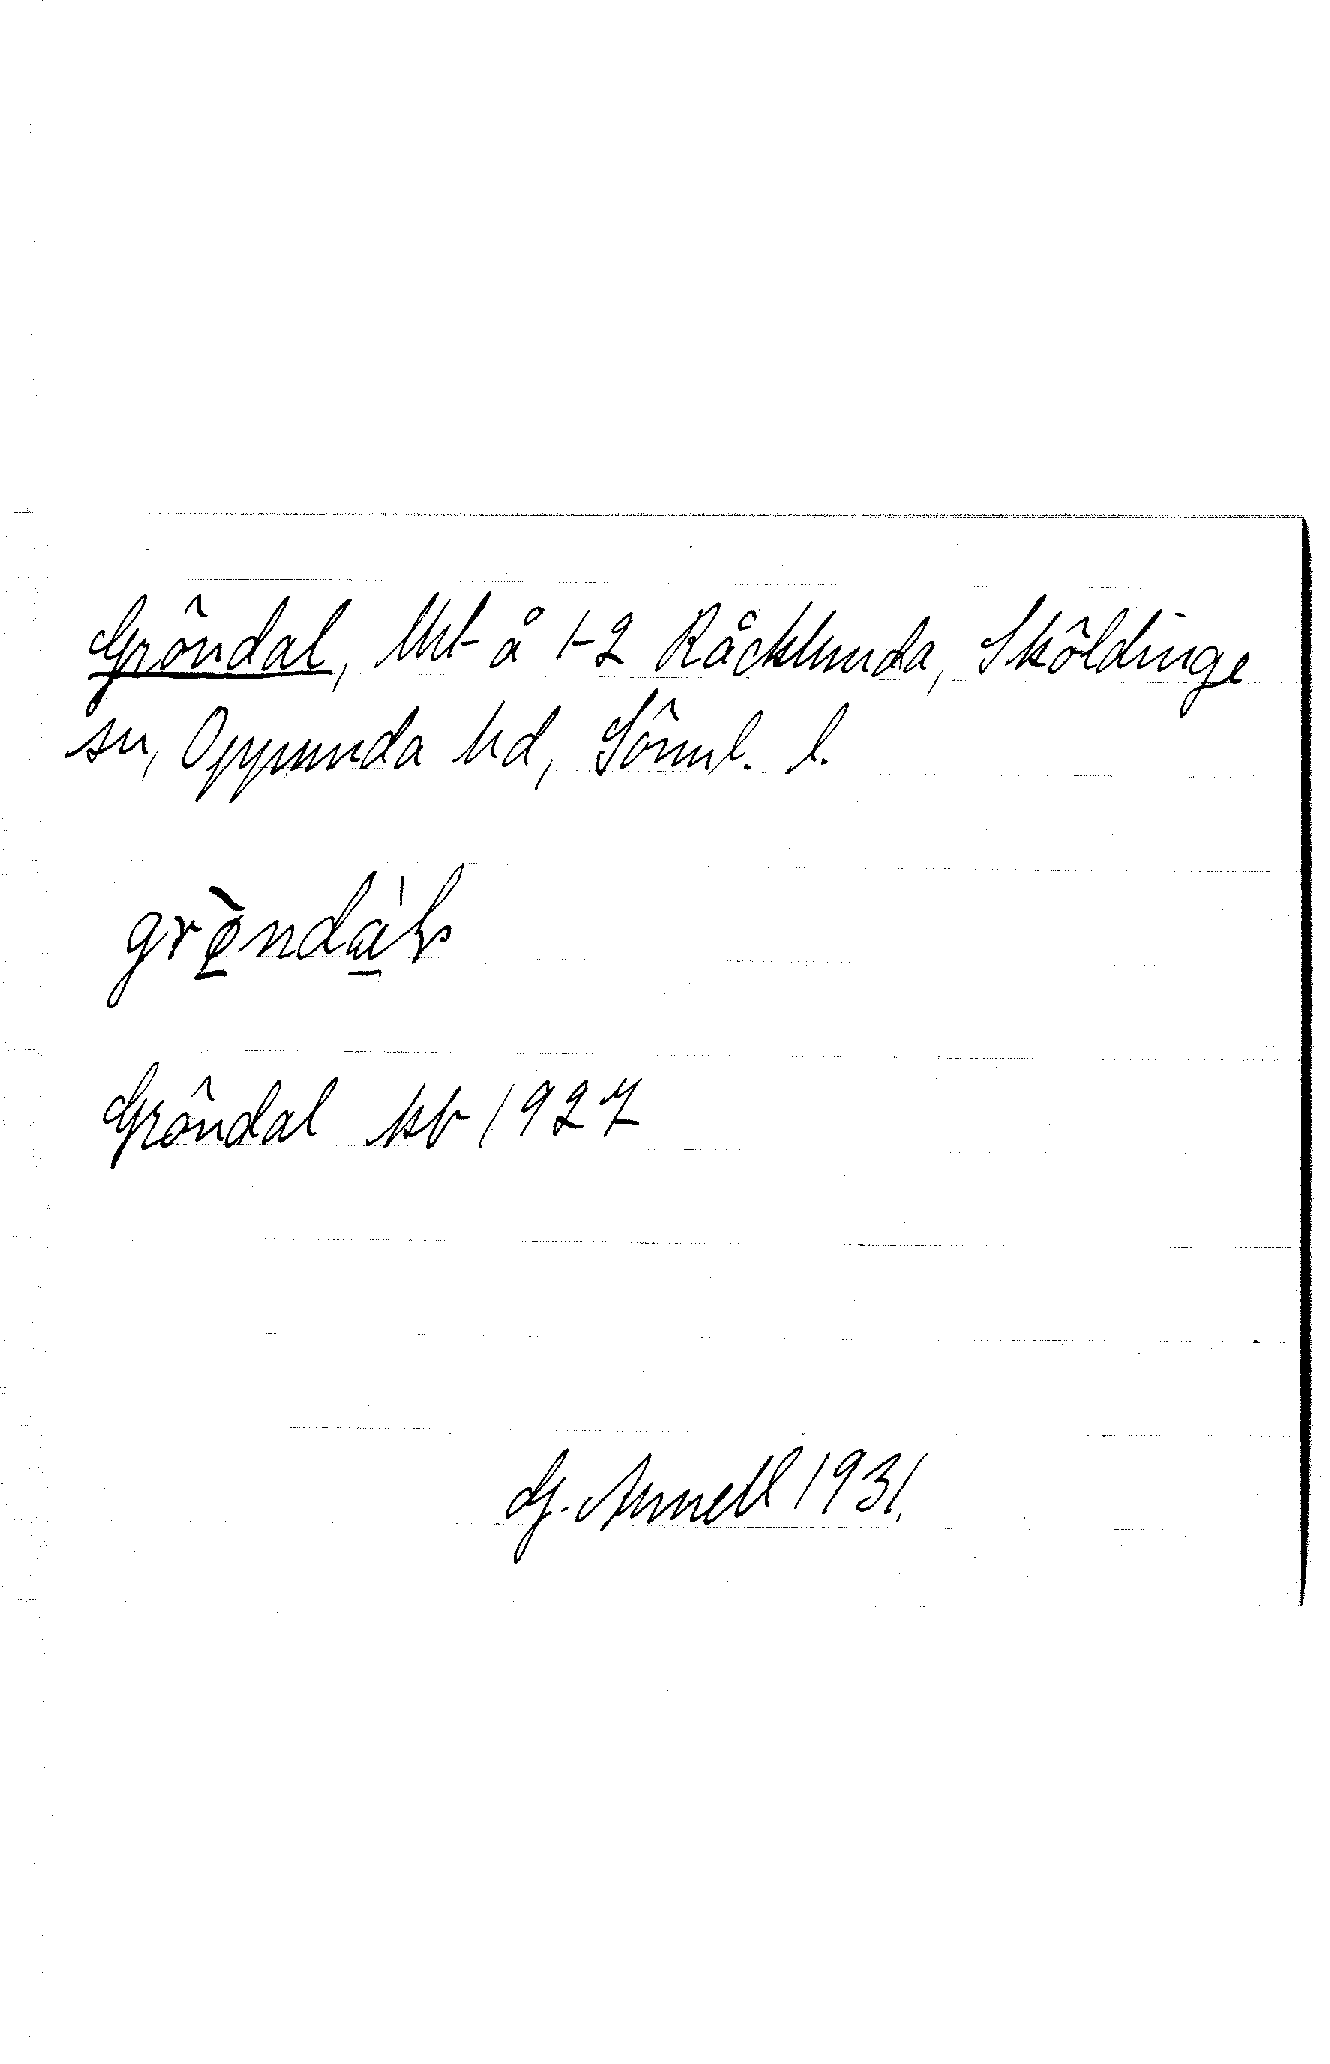 Gröndal, lht å 1-2 Råcklunda, Sköldinge
sn, Oppunda hd, Sörml. l.
Gröndal kb 1927
G. Annell 1931.